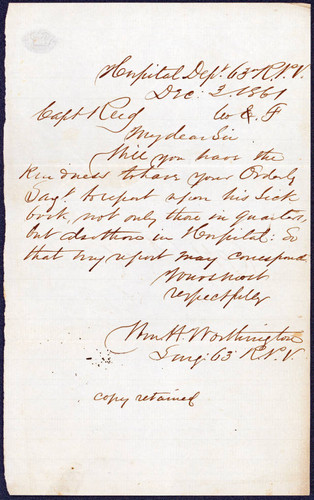 Hospital Dept. 63 R.P.V.
Dec. 3. 1861
Capt. Reed Co & F
My dear Sir
Will you have the
Kindness to have your Orderly
Sargt. to report upon his Sick
book, not only those in quarters,
but also those in Hospital: So
that my report may correspond
Yours most
respectfully
Wm H. Worthington
Surg: 63 R.P.V.
copy retained